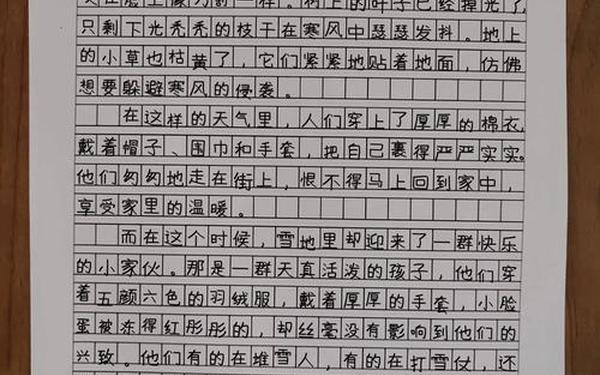 像刀割一样。树上的叶子已经掉光了,
只剩下光秃秃的枝干在寒风中瑟瑟发抖。地上
的小草也枯黄了,它们紧紧地贴着地面,仿佛
想要躲避寒风的侵袭。
在这样的天气里,人们穿上了厚厚的棉衣,
戴着帽子、围巾和手套,把自己裹得严严实实。
他们匆匆地走在街上,恨不得马上回到家中,
享受家里的温暖。
而在这个时候,雪地里却迎来了一群快乐
的小家伙。那是一群天真活泼的孩子,他们穿
着五颜六色的羽绒服,戴着厚厚的手套,小脸
蛋被冻得红彤彤的,却丝毫没有影响到他们的
兴致。他们有的在堆雪人,有的在打雪仗,还